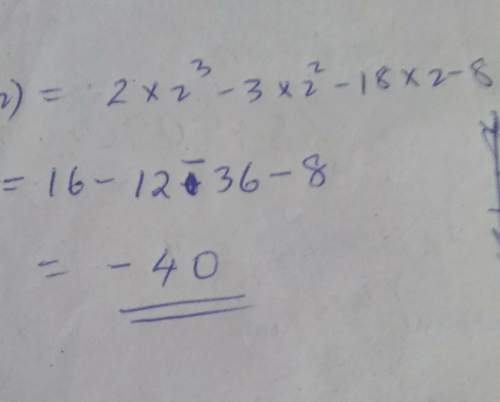 2) = 2 × 2³ - 3 × 2² - 18 × 2 - 8
= 16 - 12 - 36 - 8
= - 40